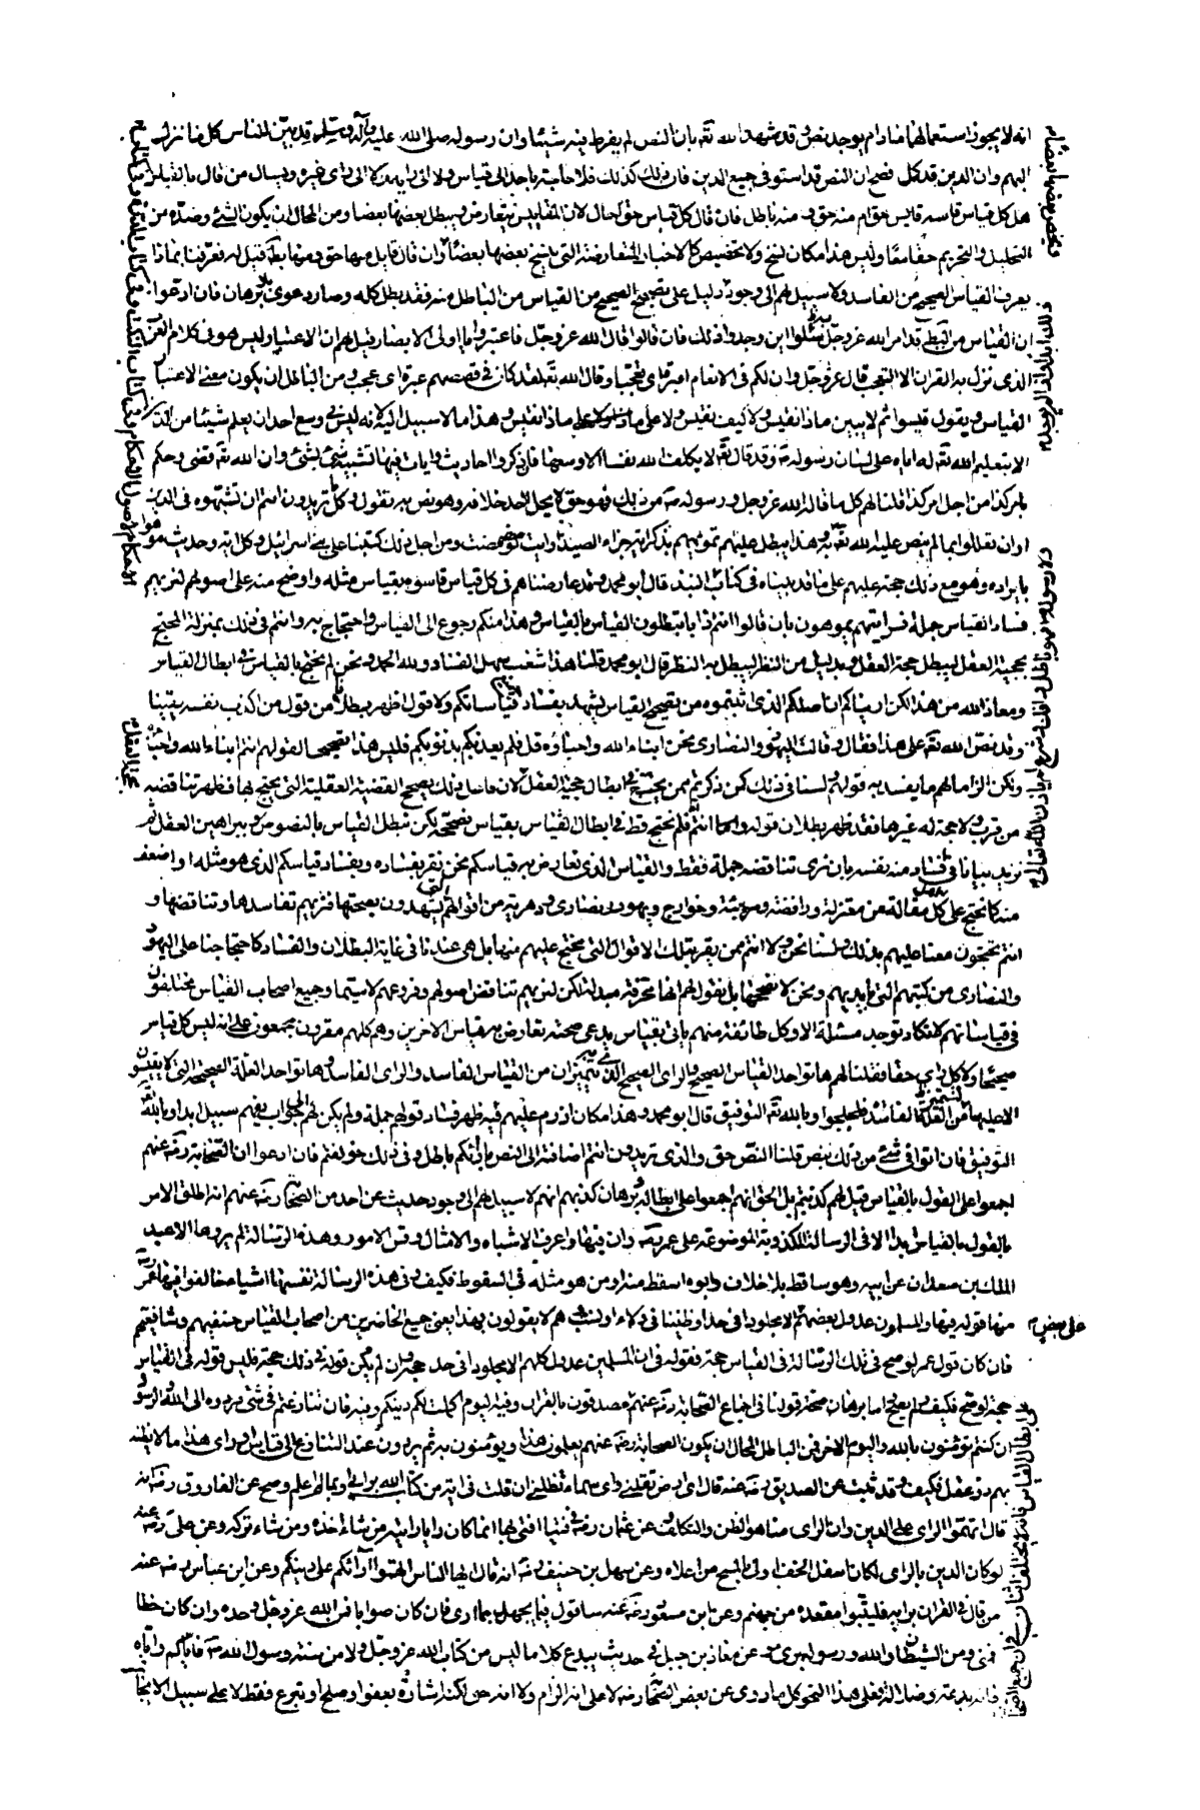 انه لا يجوز استعمالها مادام يوجد نص وقد شهد الله تعه بان النص لم يفرط فيه شيئا وان رسوله صلى الله عليه وآله وسلم قد بين للناس كل ما نزل
اليهم وان الدين قد كمل فصح ان النص قد استوفى جميع الدين فاذ ذلك كذلك فلا حاجة باحد الى قياس ولا الى رايه ولا الى راى غيره ويسال من قال بالقياس
هل كل قياس قاسه قايس حق ام منه حق ومنه باطل فان قال كل قياس حق احال لان المقاييس تتعارض ويبطل بعضها بعضا ومن المحال ان يكون الشئ وضده من
التحليل والتحريم حقا معا وليس هذا مكان نسخ ولا تخصيص كالاخبار المتعارضة التى ينسخ بعضها بعضا وان قال قايل منها حق ومنها باطل قيل له فعرفنا بماذا
يعرف القياس الصحيح من الفاسد ولا سبيل لهم الى وجود دليل على تصحيح الصحيح من القياس من الباطل منه فقد بطل كله وصار دعوى بلا برهان فان ادعوا
ان القياس قد امر الله عز وجل به سئلوا اين وجدوا ذلك فان قالوا قال الله عز وجل فاعتبروا يا اولى الابصار قيل لهم ان الاعتبار ليس هو فى كلام العرب
الذى نزل به القران الا التعجب قال عز وجل وان لكم فى الانعام لعبرة اى تعجبا وقال الله تعه لقد كان فى قصصهم عبرة اى عجب ومن الباطل ان يكون معنى الاعتبار
القياس ويقول قيسوا ثم لا يبين ماذا نقيس ولا كيف نقيس ولا على ماذا نقيس هذا ما لا سبيل اليه لانه ليس فى وسع احد ان يعلم شيئا من الدين
الا بتعليم الله تعه له اياه على لسان رسوله صه وقد قال تعه لا يكلف الله نفسا الا وسعها فان ذكروا احاديث وايات فيها تشبيه شئ بشئ وان الله تعه قضى وحكم
بامر كذا من اجل امر كذا قلنا لهم كل ما قاله الله عز وجل ورسوله صه من ذلك فهو حق لا يحل لاحد خلافه وهو نص به نقول وكل ما تريدون انتم ان تشبهوه فى الدين
او ان تعللوا بما لم ينص عليه الله تعه وهذا يبطل عليهم تمويههم بذكر اية جزاء الصيد وايت ومن اجل ذلك كتبنا على بنى اسرائيل وكل اية وحديث موهوا
بايراده وهو مع ذلك حجة عليهم على ما قد بيناه فى كتاب النبذ قال ابو محمد وقد عارضناهم فى كل قياس قاسوه بقياس مثله واوضح منه على اصولهم لنريهم
فساد القياس جملة فموه منهم مموهون بان قالوا انتم دابا تبطلون القياس بالقياس وهذا منكم رجوع الى القياس واحتجاج به وانتم فى ذلك بمنزلة المحتج
بحجية العقل ليبطل حجة العقل وبدليل من النظر ليبطل به النظر قال ابو محمد قلنا هذا شغب سهل الفساد ولله الحمد ونحن لم نحتج بالقياس فى ابطال القياس
ومعاذ الله من هذا لكن اريناكم ان اصلكم الذى اثبتموه من تصحيح القياس يشهد بفساد قياساتكم ولا قول اظهر بطلانا من قول من اكذب نفسه
وقد نص الله تعه على هذا فقال وقالت اليهود والنصارى نحن ابناء الله واحباؤه قل فلم يعذبكم بذنوبكم فليس هذا تصحيحا لقولهم انهم ابناء الله واحباؤه
ولكن الزاما لهم ما يفسد به قولهم ولسنا فى ذلك كمن ذكرتم ممن يحتج فى ابطال حجية العقل لان فاعل ذلك يصحح القضية العقلية التى يحتج بها فظهر تناقضه
من قرب ولا حجة له غيرها فقد ظهر بطلان قوله واما انتم فلم نحتج قط فى ابطال القياس بقياس نصححه لكن نبطل القياس بالنصوص وببراهين العقل ثم
نزيد بيانا فى فساده منه نفسه بان نرى تناقضه جملة فقط والقياس الذى نعارض به قياسكم نحن نقر بفساده وبفساد قياسكم الذى هو مثله او اضعف
منه كما نحتج على كل مقالة من معتزلة ورافضة ومرجئة وخوارج ويهود ونصارى ودهرية من اقوالهم التى يشهدون بصحتها فنريهم تفاسدها وتناقضها و
انتم تحتجون معنا عليهم بذلك ولسنا نحن ولا انتم ممن يقر بتلك الاقوال التى نحتج عليهم منها بل هى عندنا فى غاية البطلان والفساد كاحتجاجنا على اليهود
والنصارى من كتبهم التى بايديهم ونحن لا نصححها بل نقول انها محرفة مبدلة لكن لنريهم تناقض اصولهم وفروعهم لا سيما وجميع اصحاب القياس مختلفون
فى قياساتهم لا تكاد توجد مسئلة الا وكل طائفة منهم ياتى بقياس يدعى صحته تعارض به قياس الاخرين وهم كلهم مقرون مجمعون على انه ليس كل قياس
صحيحا ولا كل راى حقا فقلنا لهم هاتوا حد القياس الصحيح والراى الصحيح الذى يتميزان به من القياس الفاسد والراى الفاسد وهاتوا حد العلة الصحيحة التى لا تقيسون
الا عليها من العلة الفاسدة فلجلجوا وبالله تعه التوفيق قال ابو محمد وهذا مكان ان زم عليهم فيه ظهر فساد قولهم جملة ولم يكن لهم الى جواب يفهم سبيل ابدا وبالله تعه
التوفيق فان اتوا فى شئ من ذلك بنص قلنا النص حق والذى تريدون انتم اضافته الى النص بارائكم باطل وفى ذلك خولفتم فان ادعوا ان الصحابة رضه عنهم
اجمعوا على القول بالقياس قيل لهم كذبتم بل الحق انهم اجمعوا على ابطاله وبرهان كذبهم انهم لا سبيل لهم الى وجود حديث عن احد من الصحابة رضه عنهم انه اطلق الامر
بالقول بالقياس ابدا الا فى الرسالة المكذوبة الموضوعة على عمر رضه وان فيها واعرف الاشباه والامثال وقس الامور وهذه الرسالة لم يروها الا عبد
الملك بن معدان عن ابيه وهو ساقط بلا خلاف وابوه اسقط منه او من هو مثله فى السقوط فكيف وفى هذه الرسالة نفسها اشياء خالفوا فيها عمر
منها قوله فيها والمسلمون عدول بعضهم الا مجلودا فى حد او ظنينا فى ولاء او نسب وهم لا يقولون بهذا يعنى جميع الحاضرين من اصحاب القياس حنفيهم وشافعيهم
فان كان قول عمر لو صح فى تلك الرسالة فى القياس حجة فقوله فى ان المسلمين عدول كلهم الا مجلودا فى حد حجة وان لم يكن قوله فى ذلك حجة فليس قوله فى القياس
حجة لو صح فكيف ولم يصح اما برهان صحة قولنا فى اجماع الصحابة رضه عنهم مصدقون بالقران وفيه اليوم اكملت لكم دينكم وفيه فان تنازعتم فى شئ فردوه الى الله والرسول
ان كنتم تؤمنون بالله واليوم الاخر فمن الباطل المحال ان يكون الصحابة رضه عنهم يعلمون هذا ويؤمنون به ثم يردون عند التنازع الى قياس او راى هذا ما لا يظنه
بهم ذو عقل فكيف وقد ثبت عن الصديق رضه عنه قال اى ارض تقلنى واى سماء تظلنى ان قلت فى اية من كتاب الله برايى او بما لا اعلم وصح عن الفاروق رضه انه
قال اتهموا الراى على الدين وان الراى منا هو الظن والتكلف وعن عثمان رضه فى فتيا افتى بها انما كان رايا رايته من شاء اخذه ومن شاء تركه وعن على رضه عنه
لو كان الدين بالراى لكان اسفل الخف اولى بالمسح من اعلاه وعن سهل بن حنيف رضه انه قال ايها الناس اتهموا آرائكم على دينكم وعن ابن عباس رضه عنه
من قال فى القران برايه فليتبوا مقعده من جهنم وعن ابن مسعود رضه عنه ساقول فيها بجهد رايى فان كان صوابا فمن الله عز وجل وحده وان كان خطا
فمنى ومن الشيطان والله ورسوله برى وعن معاذ بن جبل فى حديث يبتدع كلاما ليس من كتاب الله عز وجل ولا من سنة رسول الله صه فاياكم واياه
فانه بدعة وضلالة فعلى هذا النحو كل ما روى عن بعض الصحابة رضه لا على انه الزام ولا انه حق لكنه اشارة بعفو او صلح او تورع فقط لا على سبيل الايجاب
على بعض
حجة العقل